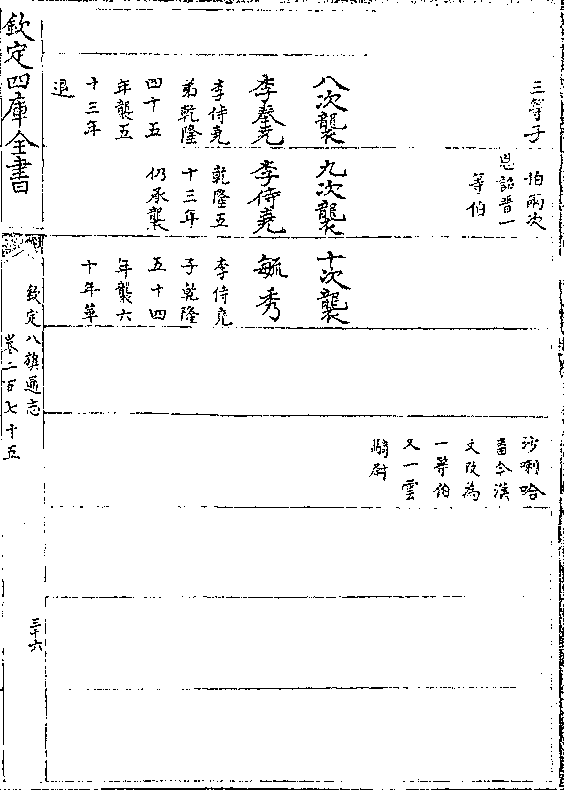 三等子
伯兩次
恩詔晉一
等伯
沙喇哈
番今漢
文改為
一等伯
又一雲
騎尉
八次襲
李奉堯
李侍堯
弟乾隆
四十五
年襲五
十三年
退
九次襲
李侍堯
乾隆五
十三年
仍承襲
十次襲
毓秀
李侍堯
子乾隆
五十四
年襲六
十年革
欽定四庫全書
欽定八旗通志
卷二百七十五
三十六